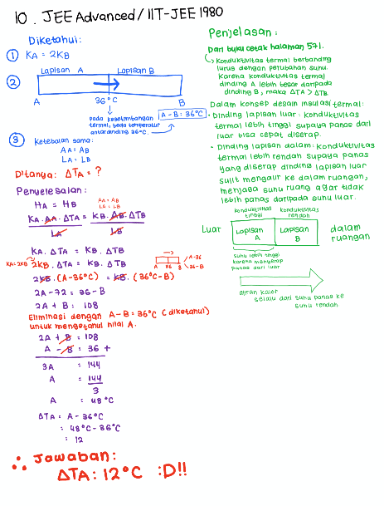 10. JEE Advanced / IIT-JEE 1980
Diketahui:
① KA = 2KB
②
Lapisan A
Lapisan B
A
36°C
B
pada kesetimbangan
termal, beda temperatur
antara dinding 36°C
A - B = 36°C
③ Ketebalan sama:
AA = AB
LA = LB
Ditanya: ΔTA = ?
Penyelesaian:
HA = HB
AA = AB
LA = LB
KA. AA. ΔTA = KB. AB. ΔTB
LA
LB
KA. ΔTA = KB. ΔTB
KA = 2KB
2KB. ΔTA = KB. ΔTB
A-36
36-B
A 36 B
2KB. (A-36°C) = KB. (36°C-B)
2A - 72 = 36 - B
2A + B = 108
Eliminasi dengan A - B = 36°C (diketahui)
untuk mengetahui nilai A.
2A + B = 108
A - B = 36 +
3A = 144
A = 144
3
A = 48°C
ΔTA = A - 36°C
= 48°C - 36°C
= 12
∴ Jawaban:
ΔTA: 12°C :D!!
Penjelasan:
Dari buku cetak halaman 571.
Konduktivitas termal berbanding
lurus dengan perubahan suhu
Karena konduktivitas termal
dinding A lebih besar daripada
dinding B, maka ΔTA > ΔTB.
Dalam konsep desain insulasi termal:
- Dinding lapisan luar: Konduktivitas
termal lebih tinggi supaya panas dari
luar bisa cepat diserap.
- Dinding lapisan dalam: Konduktivitas
termal lebih rendah supaya panas
yang diserap dinding lapisan luar
sulit mengalir ke dalam ruangan,
menjaga suhu ruang agar tidak
lebih panas daripada suhu luar.
konduktivitas
tinggi
konduktivitas
rendah
Luar
Lapisan
A
Lapisan
B
dalam
ruangan
Suhu lebih tinggi
karena menyerap
panas dari luar
aliran kalor
selalu dari suhu panas ke
suhu rendah